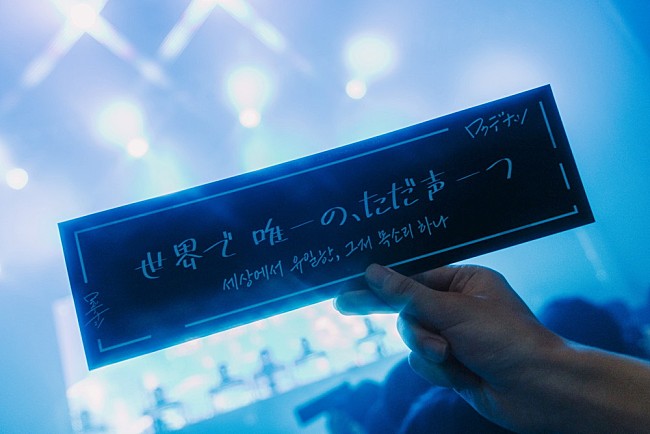 ロクデナシ
世界で唯一の、ただ声一つ
세상에서 유일한, 그저 목소리 하나